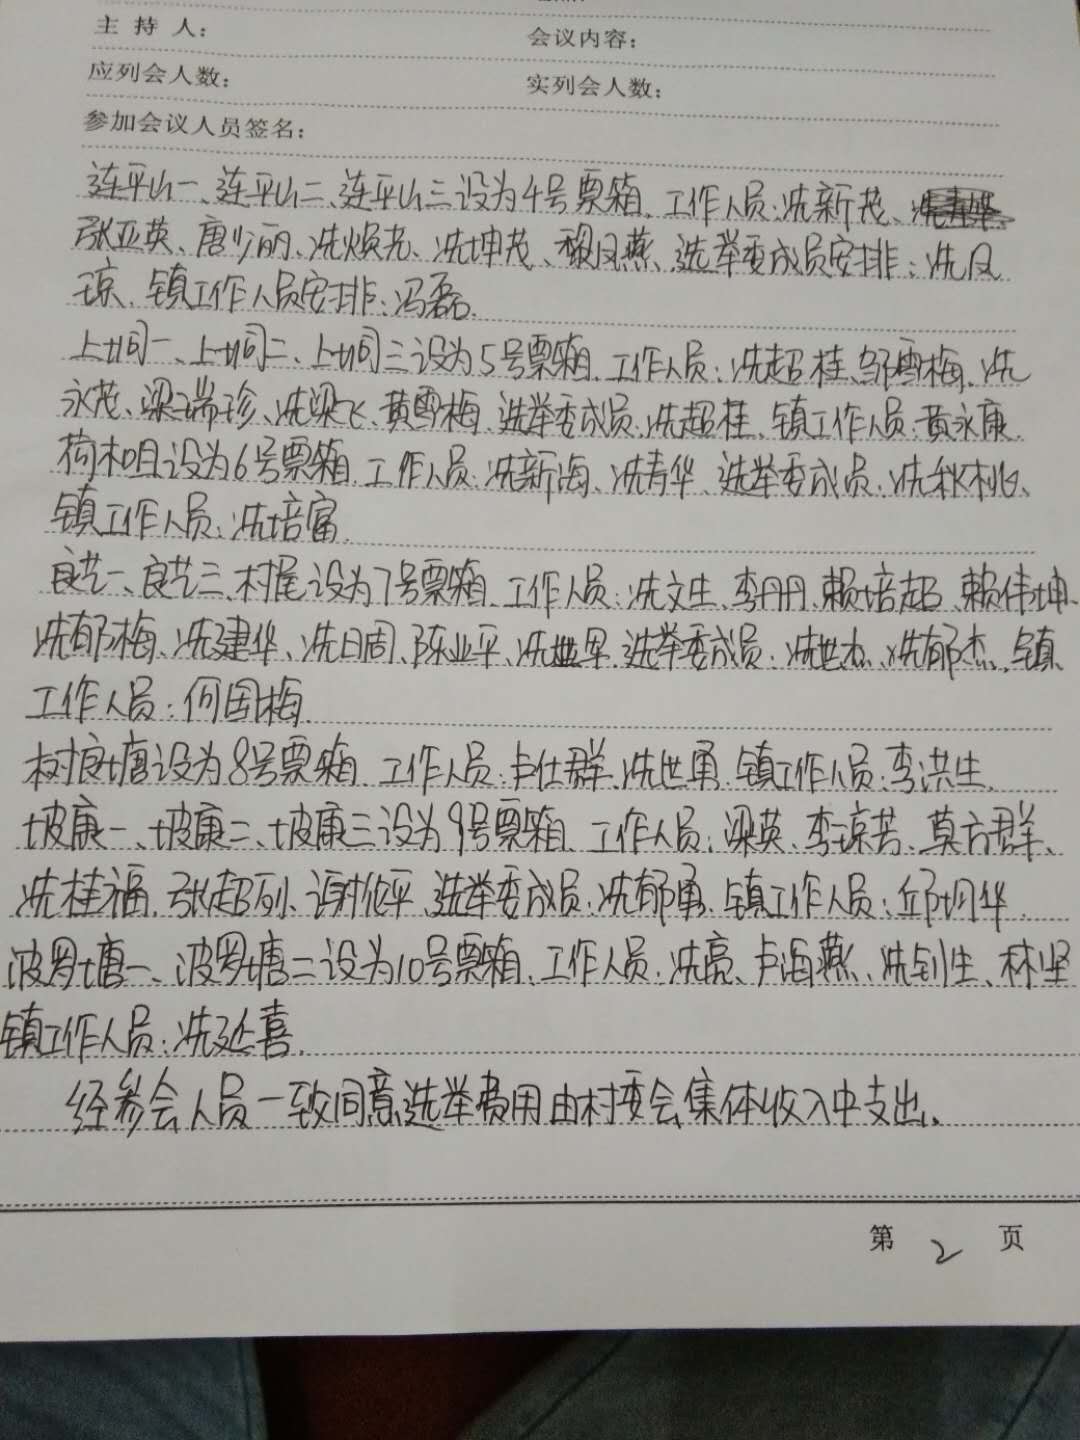 主 持 人： 会议内容：
应列会人数： 实列会人数：
参加会议人员签名：
莲平山一、莲平山二、莲平山三设为4号票箱，工作人员：冼新茂、
张亚英、唐少丽、冼焕光、冼坤茂、黎凤燕、选举委成员安排：冼凤
琼，镇工作人员安排：冯磊.
上垌一、上垌二、上垌三设为5号票箱，工作人员：冼超桂、邹雪梅、冼
永茂、梁瑞珍、冼梁飞、黄雪梅，选举委成员：冼超桂，镇工作人员：黄永康.
荷木咀设为6号票箱，工作人员：冼新海、冼青华、选举委成员：冼秋桃、
镇工作人员：冼培富.
良艺一、良艺二、村尾设为7号票箱，工作人员：冼文生、李丹丹、赖培超、赖伟坤、
冼郁梅、冼建华、冼日周、陈业平、冼世军，选举委成员：冼世杰、冼郁杰，镇
工作人员：何国梅.
树良塘设为8号票箱，工作人员：卢仕群、冼世勇，镇工作人员：李洪生.
坡康一、坡康二、坡康三设为9号票箱，工作人员：梁英、李琼芳、莫方群、
冼桂福、张超列、谢伦平，选举委成员：冼郁勇，镇工作人员：邱垌华.
波罗塘一、波罗塘二设为10号票箱，工作人员：冼亮、卢海燕、冼钊生、林坚
镇工作人员：冼延喜.
经参会人员一致同意选举费用由村委会集体收入中支出.
第 2 页